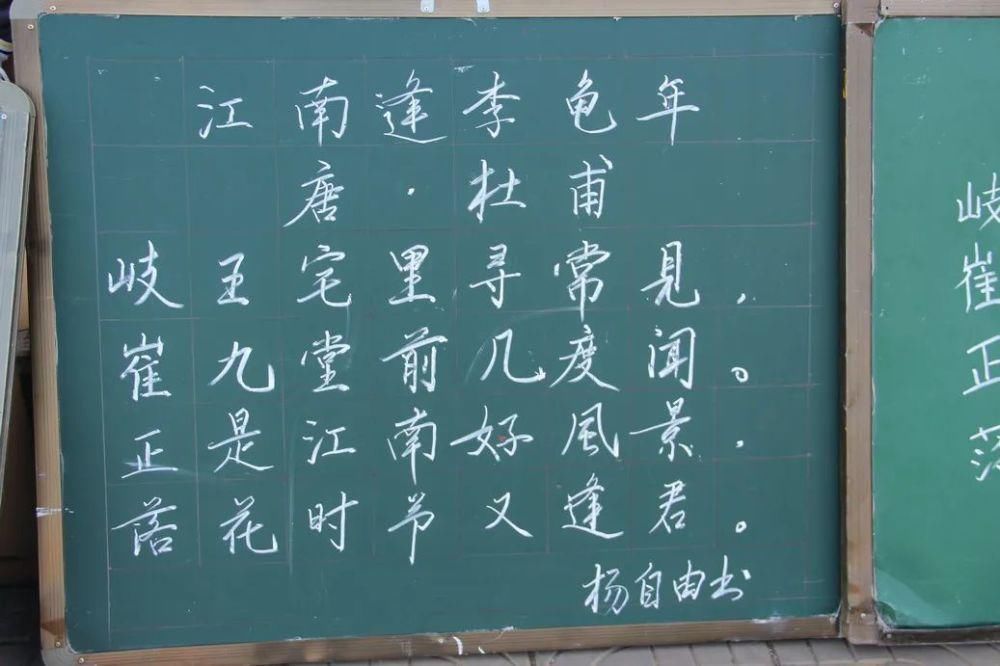 江南逢李龟年
唐·杜甫
岐王宅里寻常見，
崔九堂前几度闻。
正是江南好風景．
落花时节又逢君。
杨自由书
岐
崔
正
落